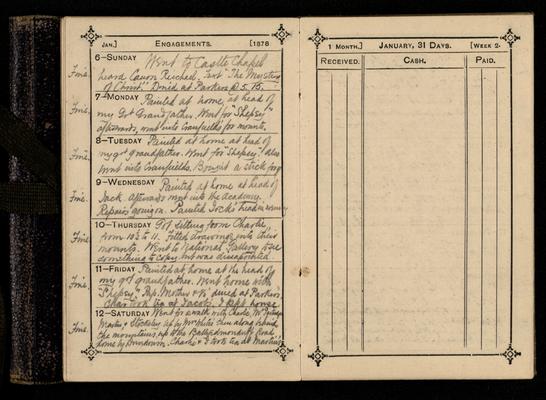 JAN.] ENGAGEMENTS. [1878
6–SUNDAY Went to Castle Chapel
Fine. heard Canon Reichel. Text "The Mystery
of Christ" Dined at Parkers
7–MONDAY Painted at home, at head of
Fine. my Grt Grandfather. Went for "Shepsey"
afterwards, went into Cranfields for mounts.
8–TUESDAY Painted at home at head of
Fine. my grt grandfather. Went for "Shepsey" also
went into Cranfields. Bought a stick for
9–WEDNESDAY Painted at home at head of
Fine. Jack. Afterwards went into the Academy.
Repairs going on. Painted Jock's head in
10–THURSDAY Got sitting from Charlie
Fine. from 10½ to 11. Fitted drawings into their
mounts. Went to National Gallery to see
something to copy but was disappointed
11–FRIDAY Painted at home at the head of
Fine. my grt grandfather. Went home with
"Shepsey". Pap. Mother & dined at Parkers
Char took tea at Jacks. I kept house
12–SATURDAY Went for a walk with Charlie, Mr
Fine. Martin & up by Mt. then along behind
the mountains up to the Ballyedmonduff Road
home by Dundrum. Charlie & I took tea at Martin's
1 MONTH.] JANUARY, 31 DAYS. [WEEK 2.
RECEIVED. CASH. PAID.